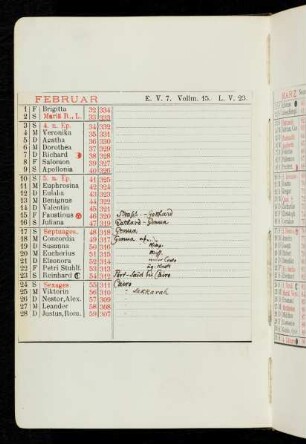 FEBRUAR E. V. 7. Vollm. 15. L. V. 23.
1 F Brigitta 32 334
2 S Mariä R., L. 33 333
3 S 4. n. Ep. 34 332
4 M Veronika 35 331
5 D Agatha 36 330
6 M Dorothea 37 329
7 D Richard 38 328
8 F Salomon 39 327
9 S Apollonia 40 326
10 S 5. n. Ep. 41 325
11 M Euphrosina 42 324
12 D Eulalia 43 323
13 M Benignus 44 322
14 D Valentin 45 321
15 F Faustinus 46 320 Gotthard
16 S Juliana 47 319 Gotthard - Genua
17 S Septuages. 48 318 Genua
18 M Concordia 49 317 Genua
19 D Susanna 50 316
20 M Eucharius 51 315
21 D Eleonora 52 314
22 F Petri Stuhlf. 53 313
23 S Reinhard 54 312 Port-Said bis Cairo
24 S Sexages. 55 311 Cairo
25 M Viktorin 56 310 " Sakkarah
26 D Nestor, Alex. 57 309
27 M Leander 58 308
28 D Justus, Rom. 59 307